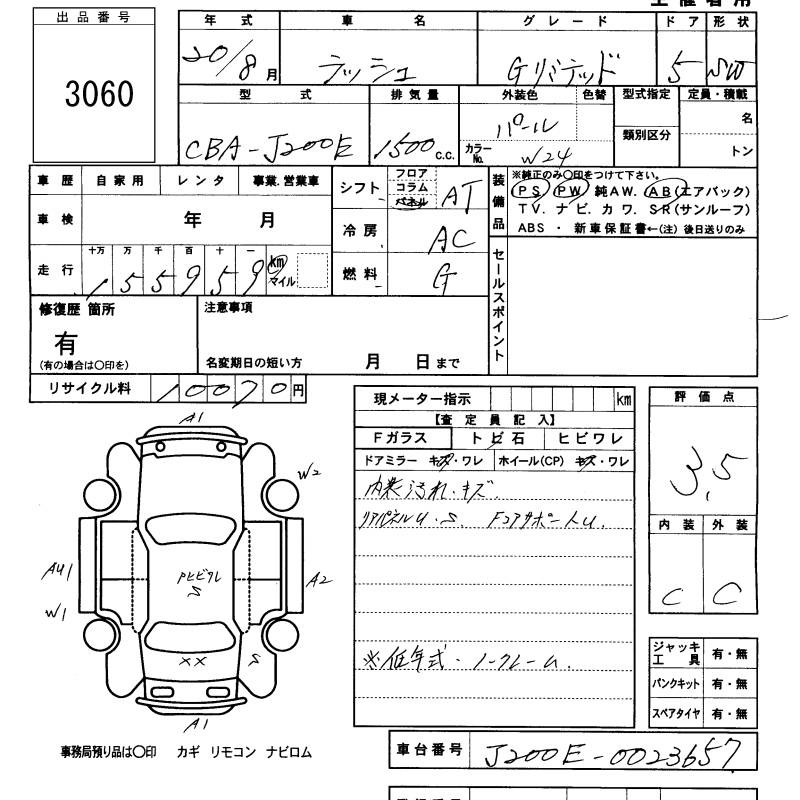 出品番号
3060
年式 車名 グレード ドア 形状
20/8月 ラッシュ Gリミテッド 5 SW
型式 排気量 外装色 色替 型式指定 定員・積載
CBA-J200E 1500c.c. パール 類別区分 名
カラーNo. W24 トン
車歴 自家用 レンタ 事業.営業車
車検 年 月
走行 十万 万 千 百 十 一
155959 km マイル
シフト フロア コラム パネル AT
冷房 AC
燃料 G
装備品
※純正のみ○印をつけて下さい。
PS PW 純AW. AB(エアバック)
TV. ナビ. カワ. SR(サンルーフ)
ABS ・ 新車保証書←(注) 後日送りのみ
セールスポイント
修復歴 箇所
有
(有の場合は○印を)
注意事項
名変期日の短い方 月 日まで
リサイクル料 10070円
現メーター指示 km
【査定員記入】
Fガラス トビ石 ヒビワレ
ドアミラー キズ・ワレ ホイール(CP) キズ・ワレ
内装汚れ・キズ
リアパネルU.S. FコアサポートU.
※低年式・ノークレーム.
評価点
3.5
内装 外装
C C
ジャッキ工具 有・無
パンクキット 有・無
スペアタイヤ 有・無
A1
W2
AU1
W1
PヒビワレS
A2
XX
S
A1
事務局預り品は○印 カギ リモコン ナビロム
車台番号 J200E-0023657